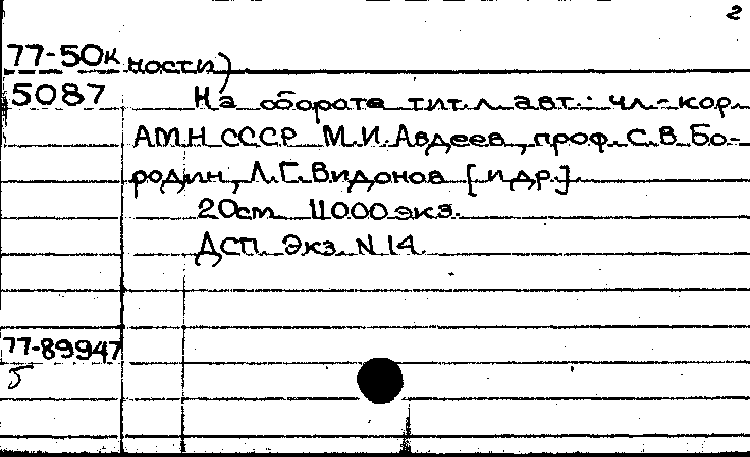 2
77-50к ности)
5087 На обороте тит. л. авт.: чл.-кор.
АМН СССР М.И.Авдеев, проф. С.В.Бо-
родин, Л.Г.Видонов [и др.].
20см 11000 экз.
ДСП. Экз. N 14.
77-89947
5